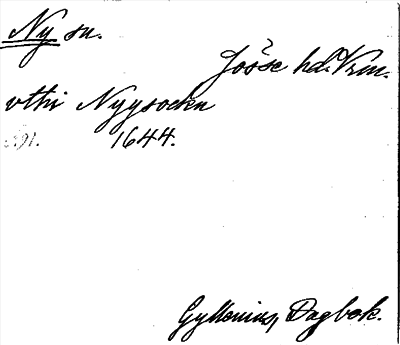 Ny sn.
Jösse hd. Vrm.
vthi Nyysocken
s. 91. 1644.
Gyllenius, Dagbok.